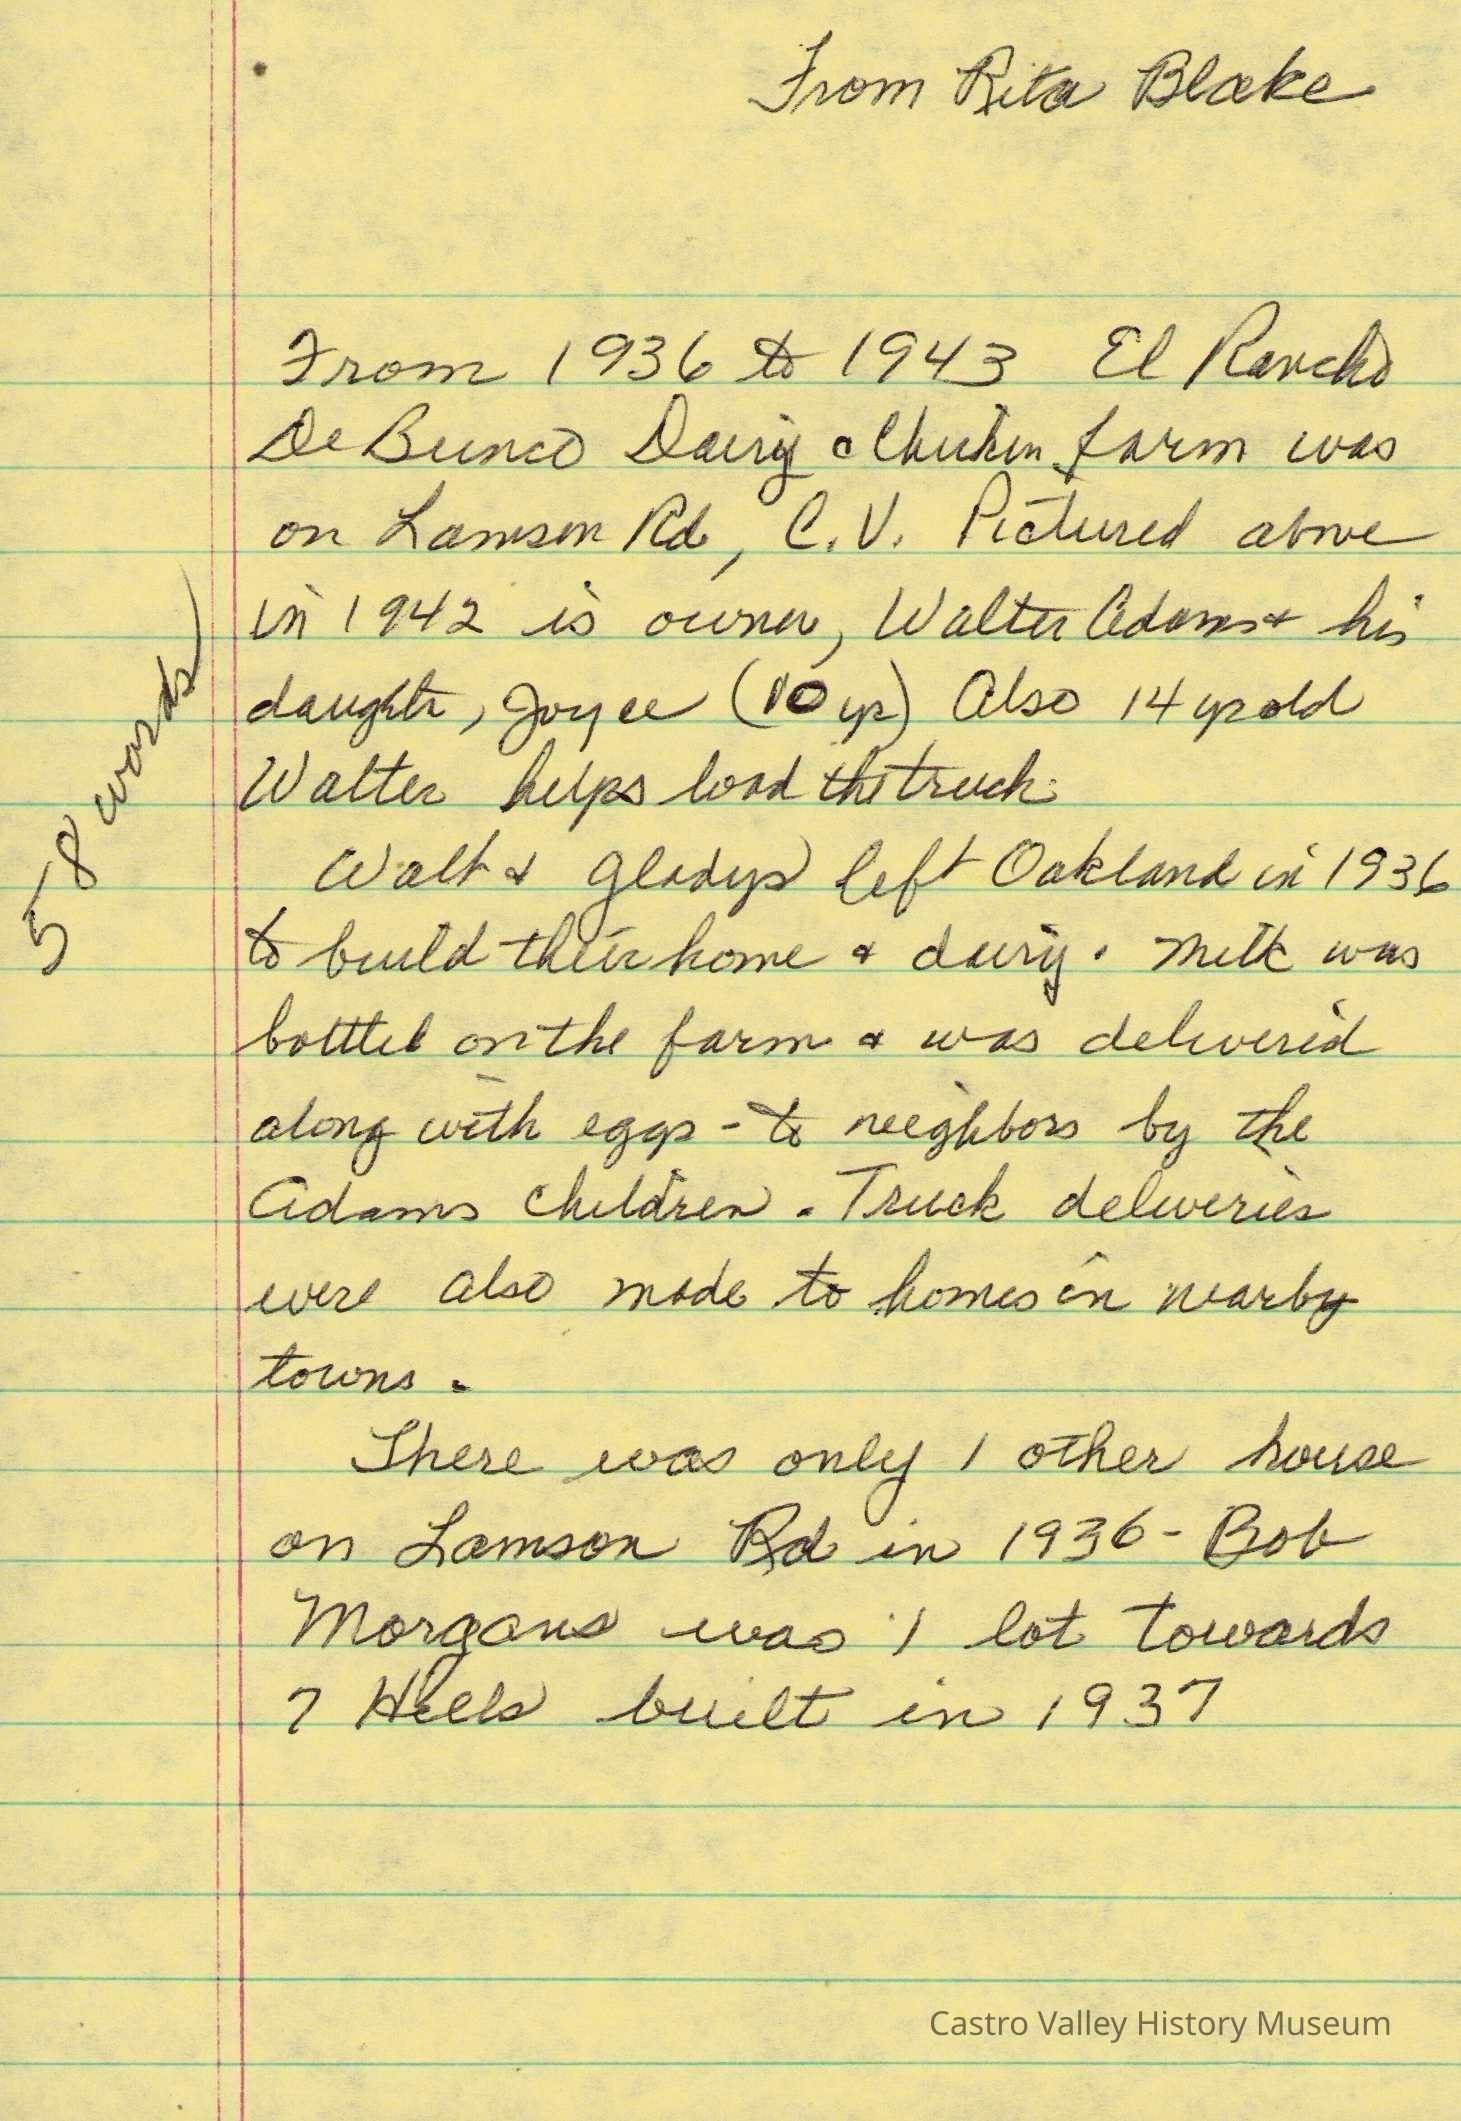 From Rita Blake
From 1936 to 1943 El Rancho
De Bunco Dairy & Chicken farm was
on Lamson Rd, C.V. Pictured above
in 1942 is owner, Walter Adams & his
daughtr, Joyce (10 yr) Also 14 yr old
Walter helps load the truck.
58 words
Walt & Gladys left Oakland in 1936
to build their home & dairy. Milk was
bottled on the farm & was delivered
along with eggs - to neighbors by the
Adams children. Truck deliveries
were also made to homes in nearby
towns.
There was only 1 other house
on Lamson Rd in 1936 - Bob
Morgans was 1 lot towards
7 Hills built in 1937
Castro Valley History Museum